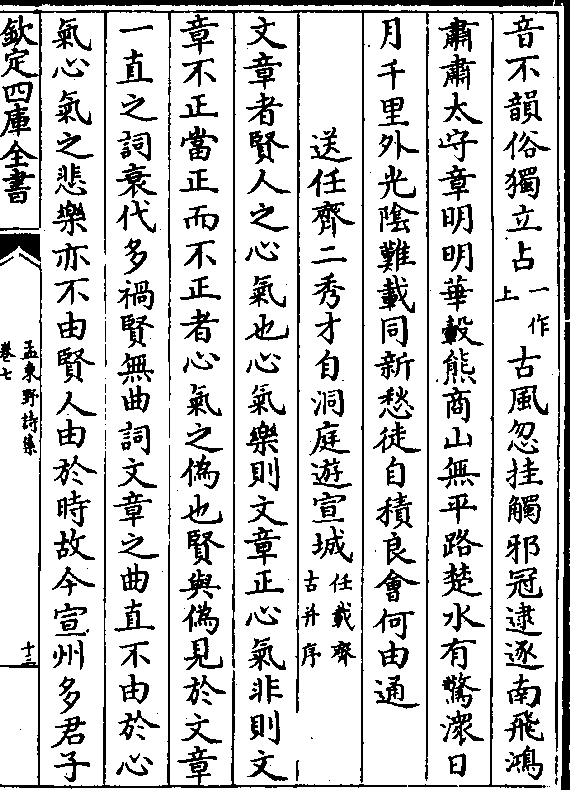 音不韻俗獨立占一作上古風忽挂觸邪冠逮逐南飛鴻
肅肅太守章明明華轂熊商山無平路楚水有驚潈日
月千里外光陰難載同新愁徒自積良會何由通
送任齊二秀才自洞庭遊宣城任載齊古并序
文章者賢人之心氣也心氣樂則文章正心氣非則文
章不正當正而不正者心氣之偽也賢與偽見於文章
一直之詞衰代多禍賢無曲詞文章之曲直不由於心
氣心氣之悲樂亦不由賢人由於時故今宣州多君子
欽定四庫全書
孟東野詩集
卷七
十三